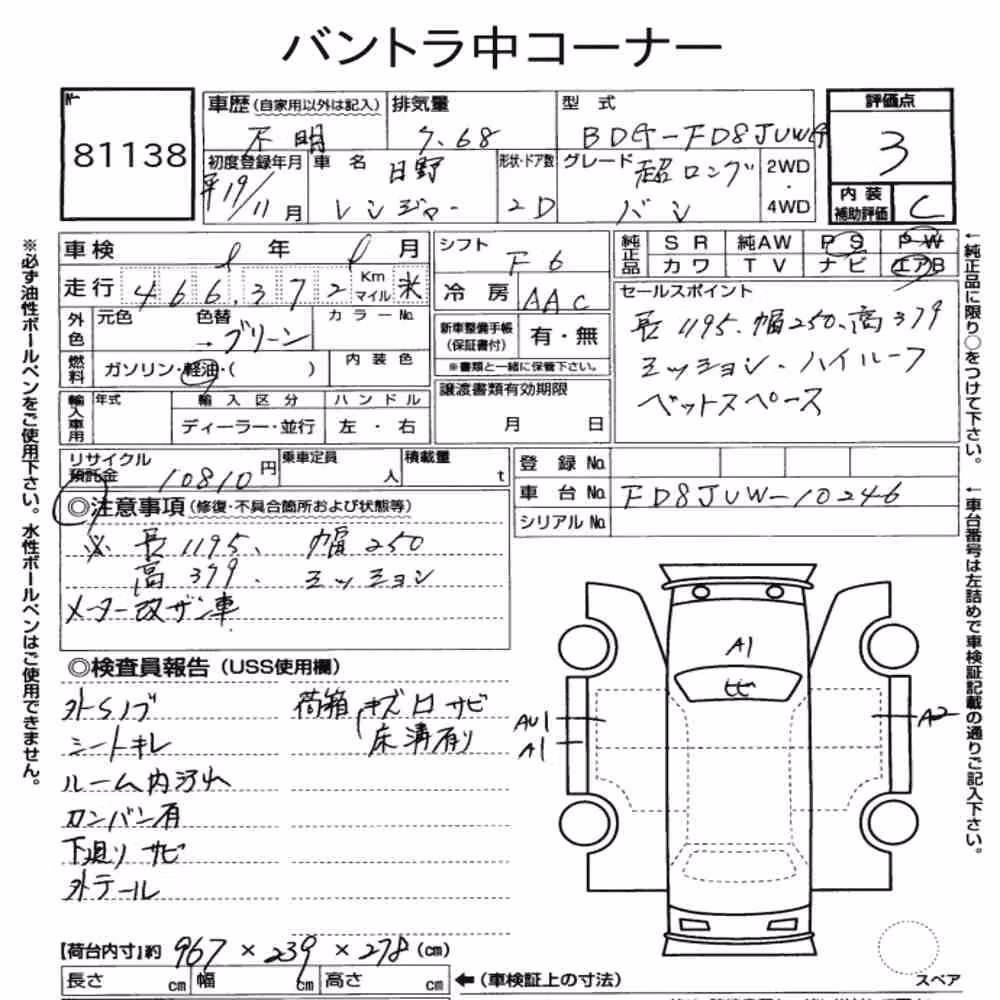 バントラ中コーナー
No.
81138
車歴 (自家用以外は記入) 不明
排気量 7.68
型式 BDG-FD8JUWG
評価点 3
内装補助評価 C
初度登録年月 平19/11月
車名 日野 レンジャー
形状・ドア数 2D
グレード 超ロング バン
2WD・4WD
車検 年 月
シフト F6
走行 466,372 Km マイル 米
冷房 AAC
純正品 SR 純AW PS PW
カワ TV ナビ エアB
外色 元色 色替 → グリーン
カラーNo.
燃料 ガソリン・軽油・( )
内装色
新車整備手帳(保証書付) 有・無
※書類と一緒に保管下さい。
セールスポイント
長1195.幅250、高379
ミッション・ハイルーフ
ベットスペース
輸入車用 年式 輸入区分 ハンドル
ディーラー・並行 左・右
譲渡書類有効期限
月 日
リサイクル預託金 10810円
乗車定員 人
積載量 t
登録No.
車台No. FD8JUW-10246
シリアルNo.
◎注意事項(修復・不具合箇所および状態等)
※ 長1195、幅250
高379.ミッション
メーター改ザン車
◎検査員報告(USS使用欄)
外Sノブ
シートキレ
ルーム内汚れ
カンバン有
下廻りサビ
外テール
荷箱 キズ凹サビ
床溝有り
A1
ヒビ
AU1
A1
A2
【荷台内寸】約 967×239×278(cm)
長さ cm 幅 cm 高さ cm
←(車検証上の寸法)
スペア
※必ず油性ボールペンをご使用下さい。水性ボールペンはご使用できません。
←純正品に限り○をつけて下さい。
←車台番号は左詰めで車検証記載の通りご記入下さい。